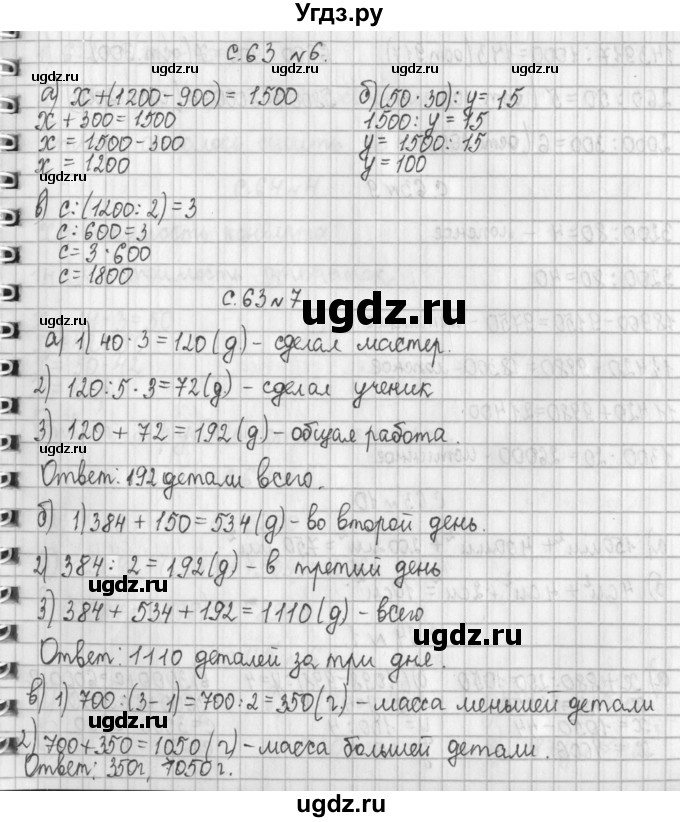 Угдз.ру
с.63 №6.
ugdz.ru ugdz.ru ugdz.ru
а) x+(1200-900)=1500 б)(50·30):y=15
x+300=1500 1500:y=15
x=1500-300 y=1500:15
ugdz.ru
x=1200 y=100
в) c:(1200:2)=3
c:600=3
c=3·600
c=1800
с.63№7
ugdz.ru ugdz.ru
а) 1) 40·3=120(д)-сделал мастер.
2) 120:5·3=72(д)-сделал ученик
3) 120+72=192(д)-общая работа.
ugdz.ru ugdz.ru
Ответ: 192 детали всего.
б) 1)384+150=534(д)-во второй день.
2) 384:2=192(д)-в третий день
ugdz.ru
3) 384+534+192=1110(д)-всего
ugdz.ru
Ответ: 1110 деталей за три дне.
в) 1) 700:(3-1)=700:2=350(г)-масса меньшей детали
ugdz.ru
2) 700+350=1050(г)-масса большей детали.
ugdz.ru
Ответ: 350г, 1050г.
ugdz.ru